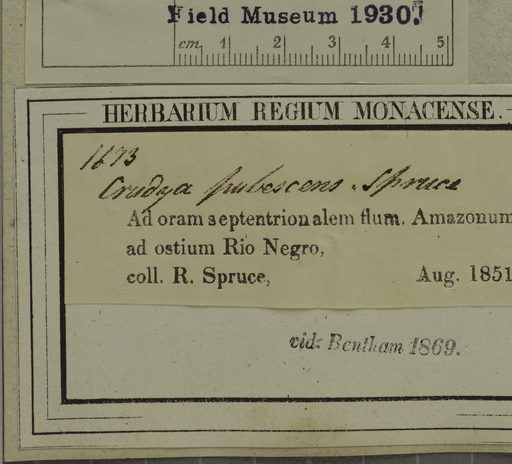 Field Museum 1930.
cm 1 2 3 4 5
HERBARIUM REGIUM MONACENSE.
1673
Crudya pubescens. Spruce
Ad oram septentrionalem flum. Amazonum
ad ostium Rio Negro,
coll. R. Spruce, Aug. 1851
vid: Bentham 1869.